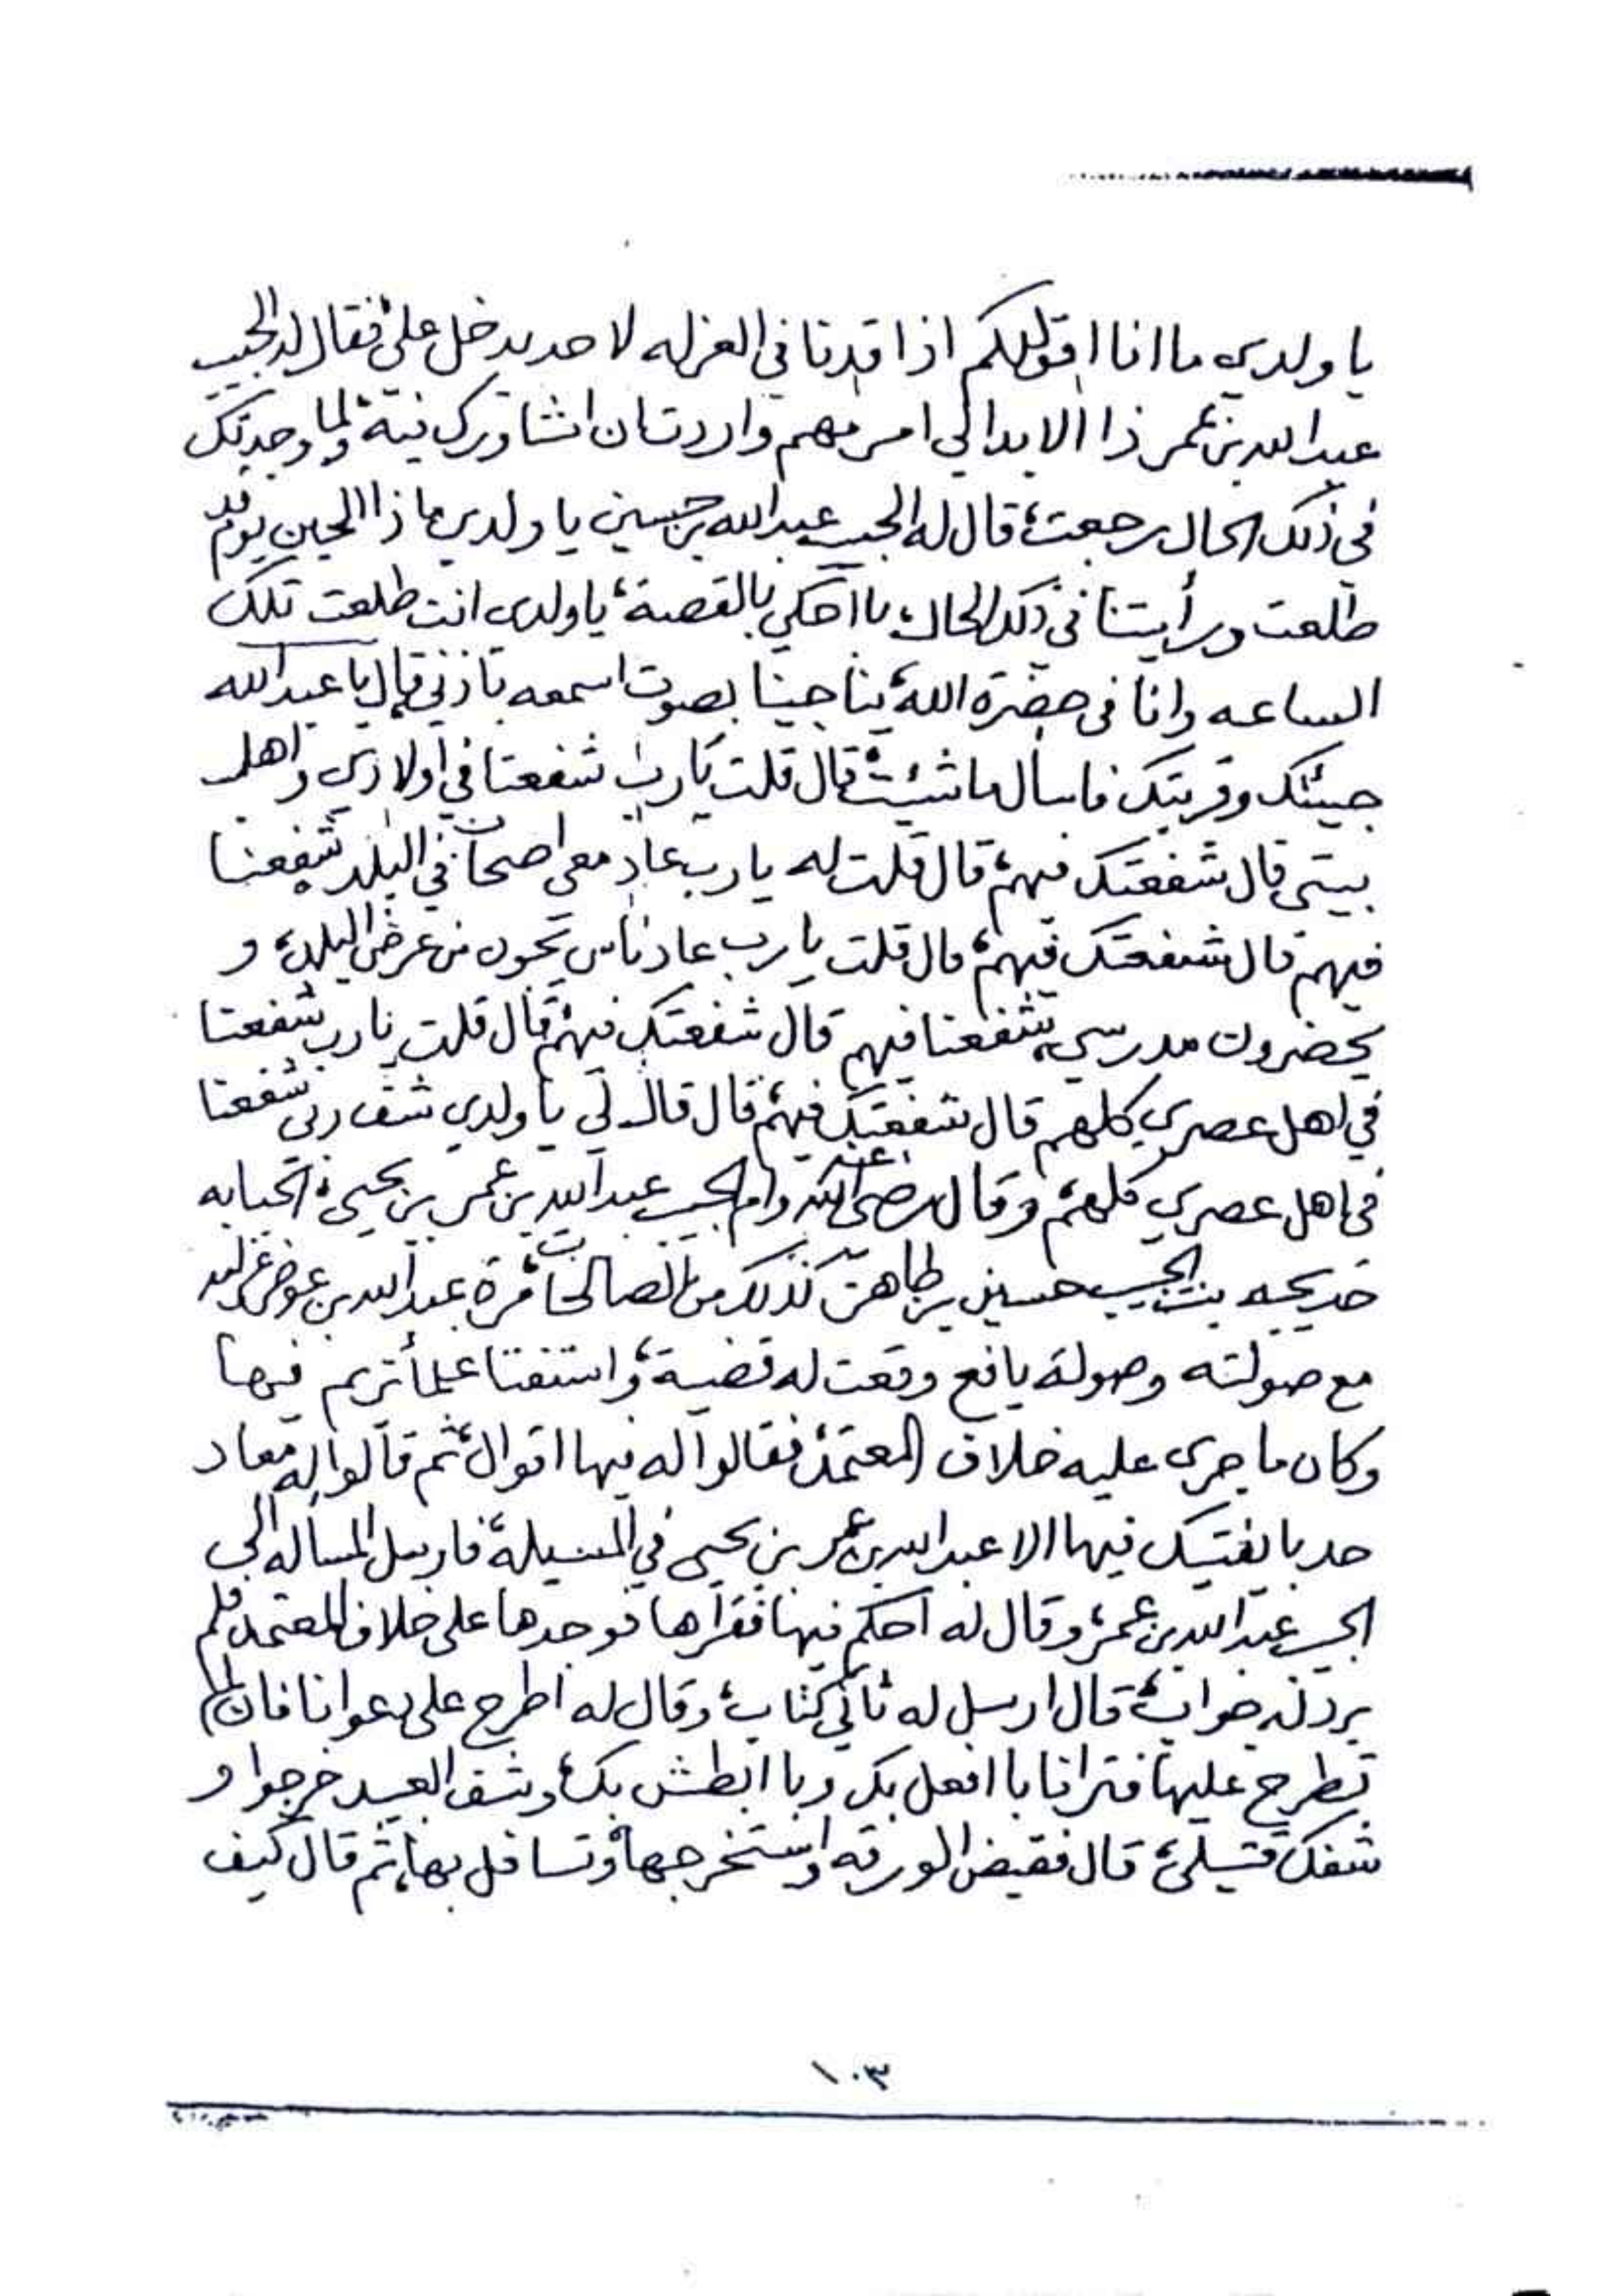 يا ولدي ما انا اقول لكم اذا قدنا في العزله لا حد يدخل علي، فقال له الحبيب
عبدالله بن عمر ذا الا بدا لي امر مهم واردت ان اشاورك فيه، ولما وجدتك
في ذلك الحال رجعت، قال له الحبيب عبدالله بن حسين يا ولدي ما ذا الحين يوم قد
طلعت ورأيتنا في ذلك الحال، با احكي بالقصة، يا ولدي انت طلعت تلك
الساعه وانا في حضرة الله، يناجينا بصوت اسمعه باذني قال لي يا عبدالله
جيئتك وقربتك فاسأل ما شئت، قال قلت يا رب شفعنا في اولادي واهل
بيتي قال شفعتك فيهم، قال قلت له يا رب عاد معي اصحاب في البلد شفعنا
فيهم قال شفعتك فيهم، قال قلت يا رب عاد ناس يجون من عرض البلد، و
يحضرون مدرسي، شفعنا فيهم قال شفعتك فيهم، قال قلت يا رب شفعنا
في اهل عصري كلهم قال شفعتك فيهم، قال قال لي يا ولدي شف ربي شفعنا
في اهل عصري كلهم، وقال رضي الله عنه وام الحبيب عبدالله بن عمر بن يحيى، الحبابه
خديجه بنت الحبيب حسين بن طاهر، كذلك من الصالحات، مرة عبدالله بن عوض غرامه
مع صولته وصولة يافع وقعت له قضية، واستفتا علماء تريم فيها
وكان ما جرى عليه خلاف المعتمد، فقالوا له فيها اقوال، ثم قالوا له معاد
حد با يفتيك فيها الا عبدالله بن عمر بن يحيى في المسيلة، فارسل المسأله الى
الحبيب عبدالله بن عمر، وقال له احكم فيها فقرأها فوجدها على خلاف المعتمد فلم
يرد له جواب، قال ارسل له ثاني كتاب، وقال له اطرح على دعوانا فان لم
تطرح عليها فترانا با افعل بك وبا ابطش بك، وشف العبيد خرجوا و
شفك قتيلي، قال فقبض الورقه واستخرجها، وتسافل بها، ثم قال كيف
١٠٣